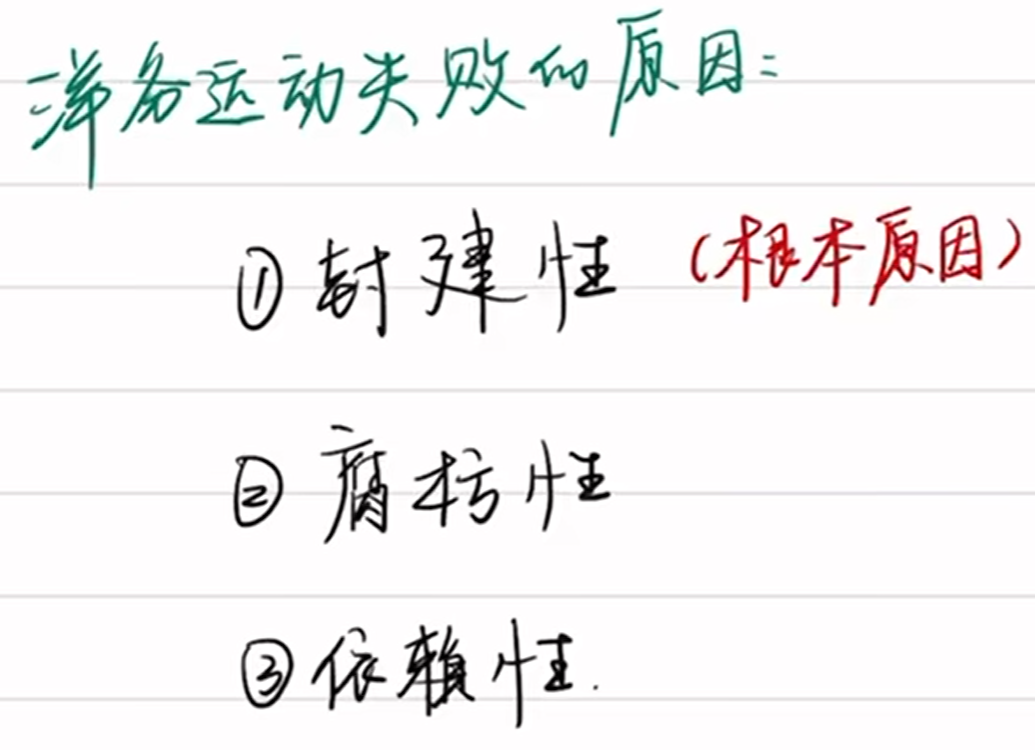 洋务运动失败的原因:
①封建性 (根本原因)
②腐朽性
③依赖性.